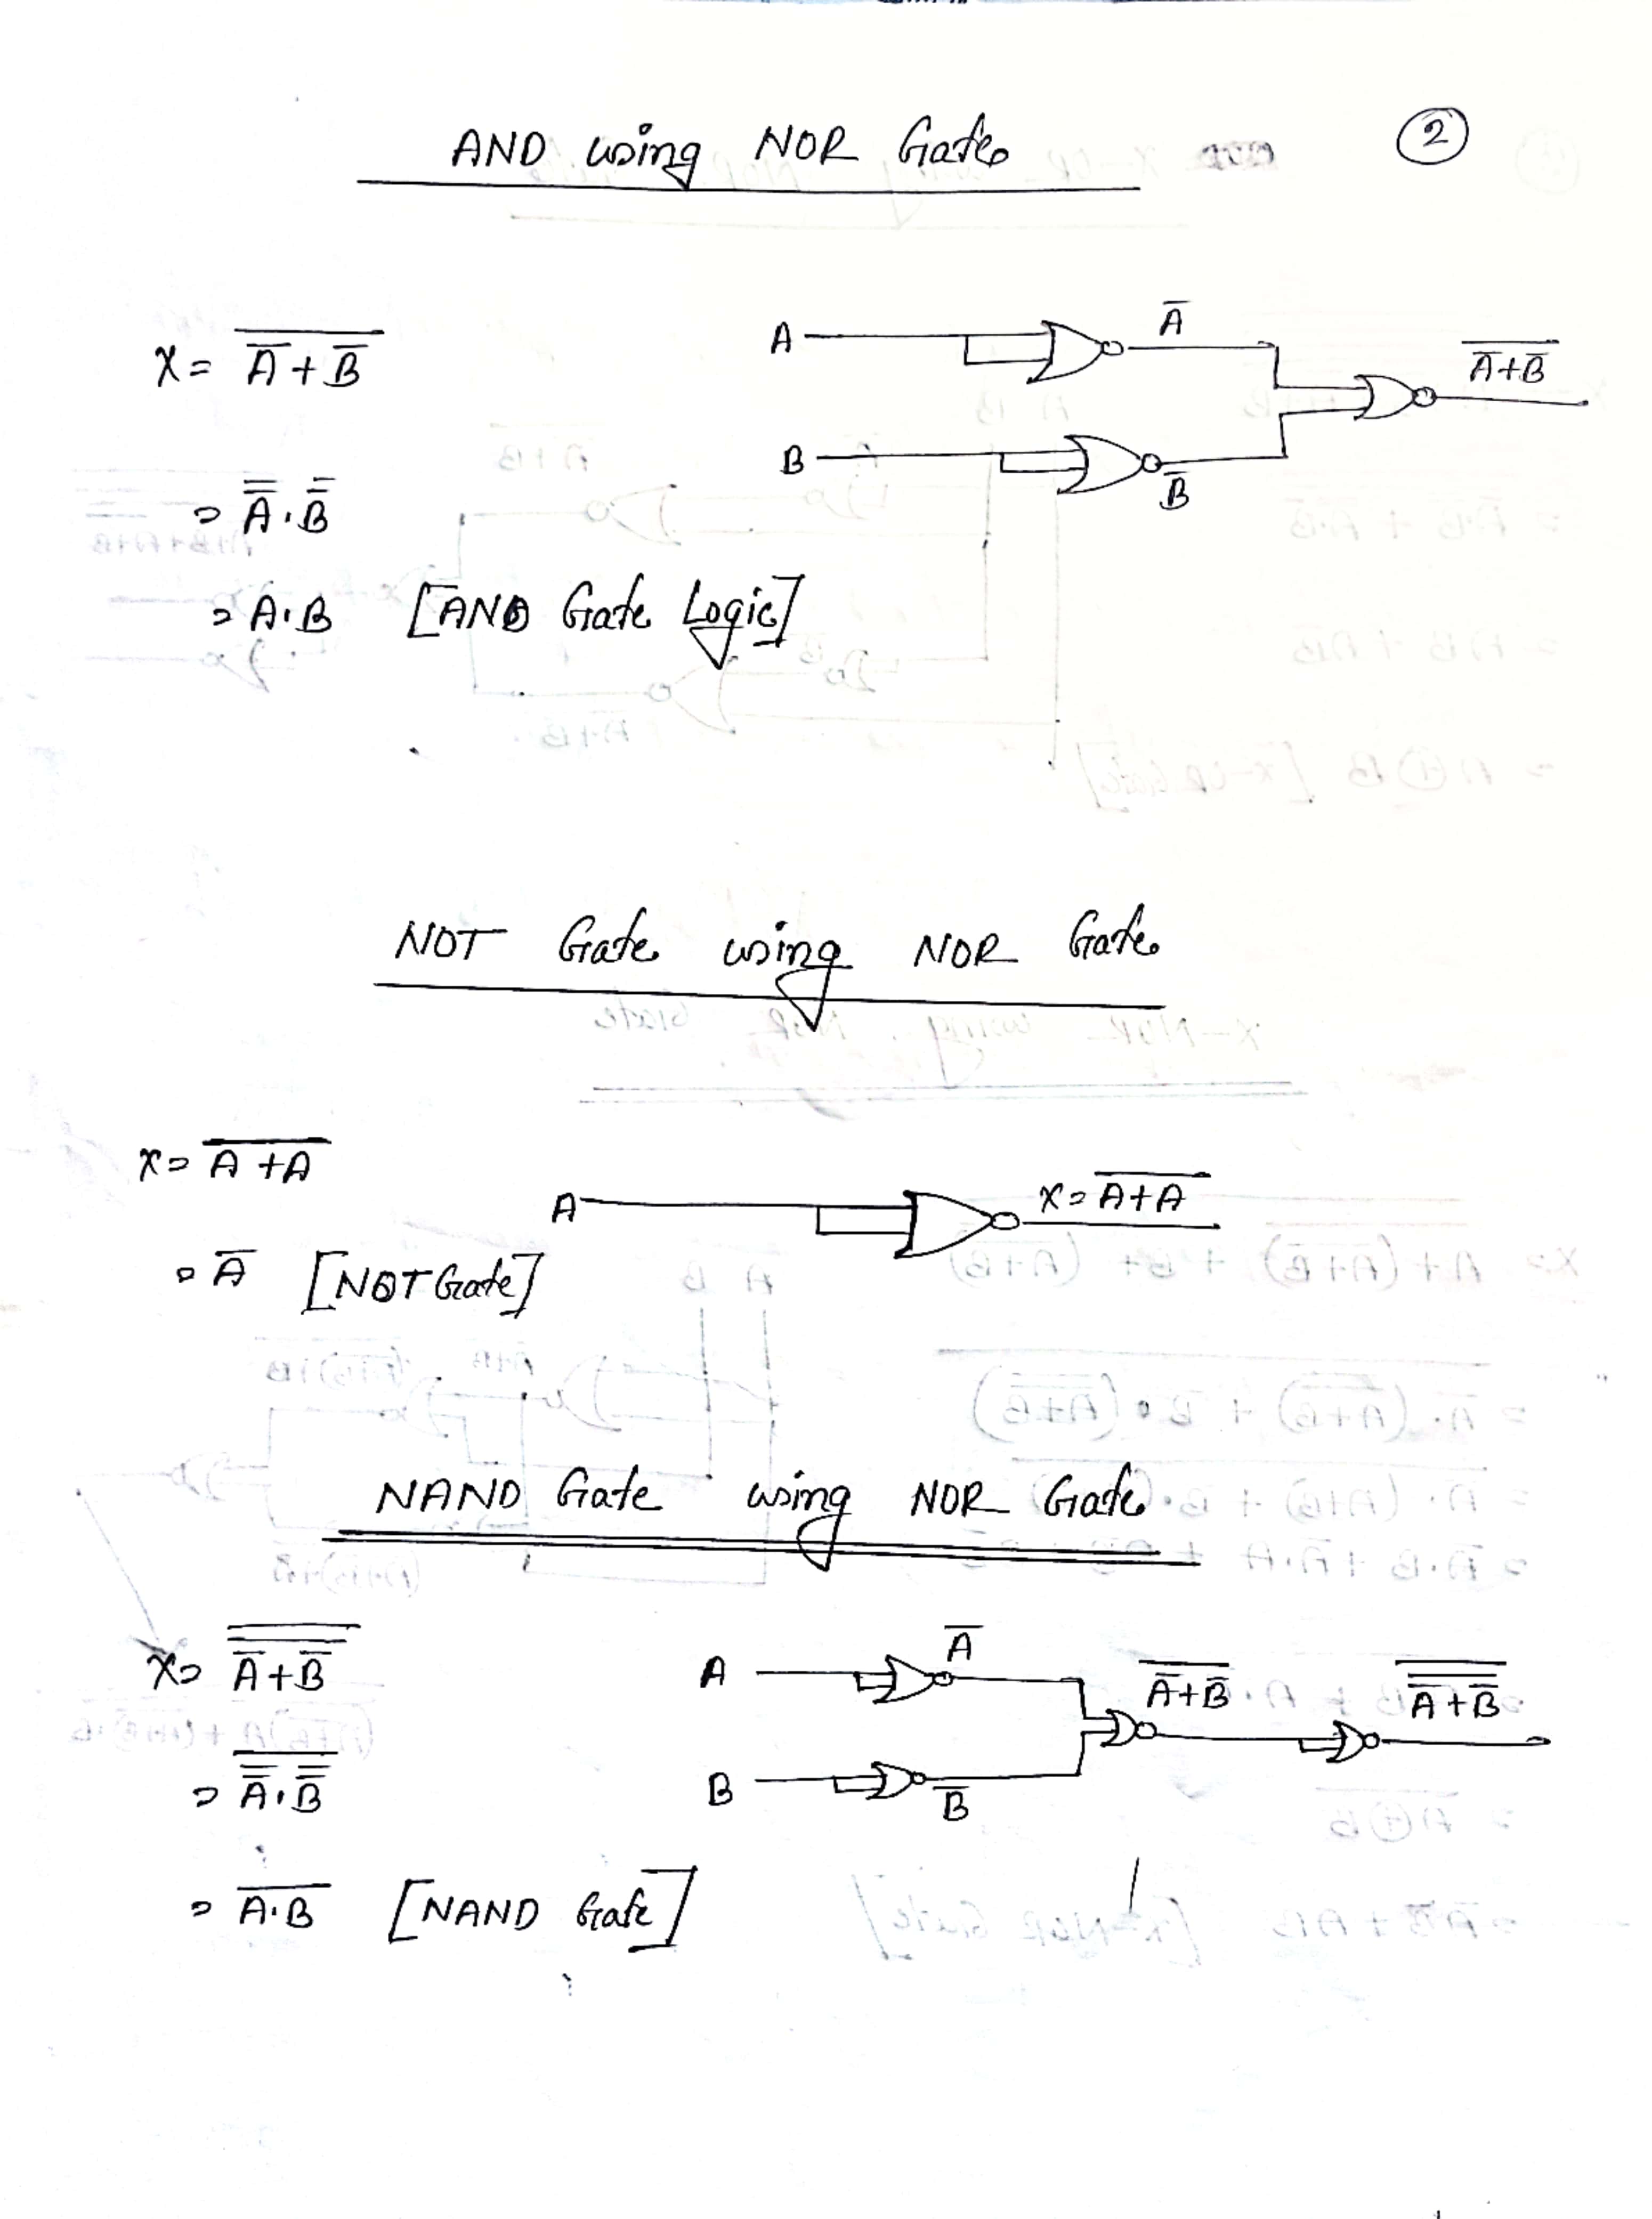 AND using NOR Gate
②
X = \overline{\overline{A} + \overline{B}}
= \overline{\overline{A}} . \overline{\overline{B}}
= A.B [AND Gate Logic]
A
\overline{A}
\overline{\overline{A}+\overline{B}}
B
\overline{B}
NOT Gate using NOR Gate
X = \overline{A + A}
= \overline{A} [NOT Gate]
A
X = \overline{A + A}
NAND Gate using NOR Gate
X = \overline{\overline{\overline{A} + \overline{B}}}
= \overline{\overline{\overline{A}} . \overline{\overline{B}}}
= \overline{A.B} [NAND Gate]
A
\overline{A}
\overline{\overline{A}+\overline{B}}
\overline{\overline{\overline{A}+\overline{B}}}
B
\overline{B}